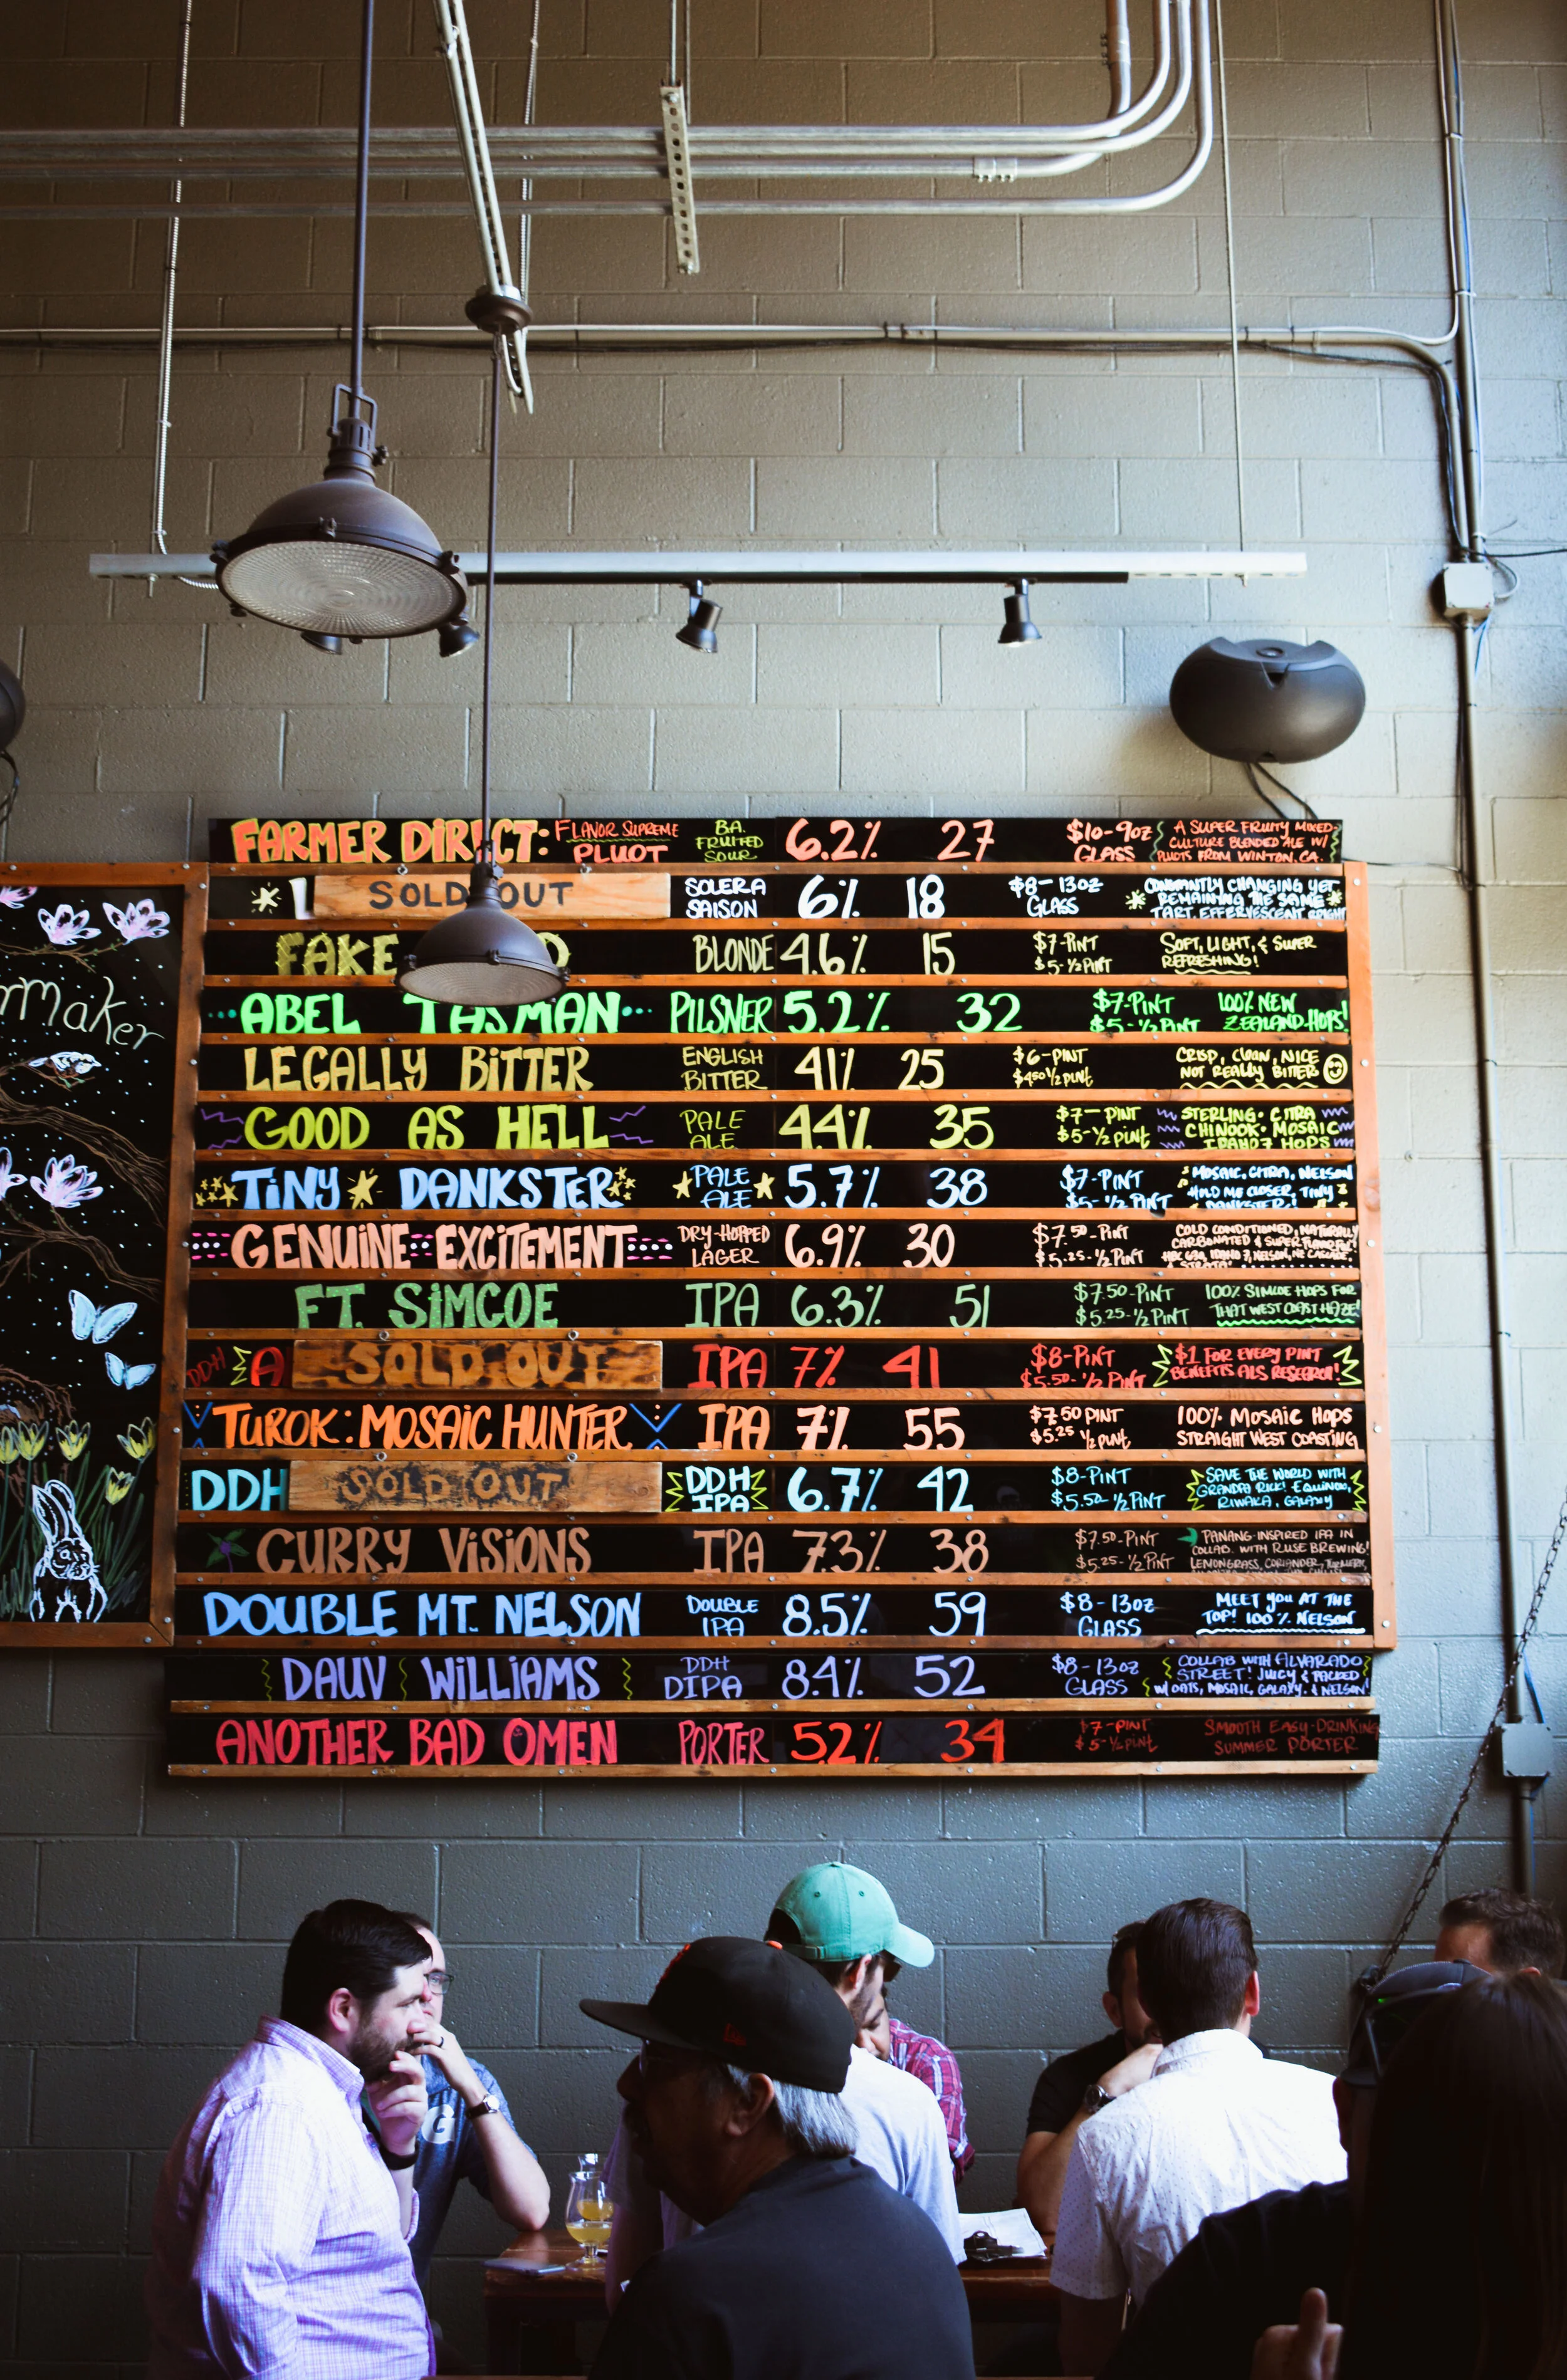 maker
FARMER DIRECT: FLAVOR SUPREME PLUOT B.A. FRUITED SOUR 6.2% 27 $10-9OZ GLASS A SUPER FRUITY MIXED-CULTURE BLENDED ALE W/ PLUOTS FROM WINTON, CA.
SOLD OUT SOLERA SAISON 6% 18 $8-13OZ GLASS CONSTANTLY CHANGING YET REMAINING THE SAME TART, EFFERVESCENT, BRIGHT
FAKE BLONDE 4.6% 15 $7-PINT $5-½PINT SOFT, LIGHT, & SUPER REFRESHING!
ABEL TASMAN PILSNER 5.2% 32 $7-PINT $5-½PINT 100% NEW ZEALAND HOPS!
LEGALLY BITTER ENGLISH BITTER 41% 25 $6-PINT $4.50 ½ PINT CRISP, CLEAN, NICE NOT REALLY BITTER
GOOD AS HELL PALE ALE 4.4% 35 $7-PINT $5-½ PINT STERLING· CITRA CHINOOK· MOSAIC IDAHO 7 HOPS
TINY DANKSTER PALE ALE 5.7% 38 $7-PINT $5-½ PINT MOSAIC, CITRA, NELSON HOLD ME CLOSER, TINY DANKSTER!
GENUINE EXCITEMENT DRY-HOPPED LAGER 6.9% 30 $7.50-PINT $5.25-½PINT COLD CONDITIONED, NATURALLY CARBONATED & SUPER NELSON, STRATA
FT. SIMCOE IPA 6.3% 51 $7.50-PINT $5.25-½PINT 100% SIMCOE HOPS FOR THAT WEST COAST HAZE!
DDH A SOLD OUT IPA 7% 41 $8-PINT $5.50-½PINT $1 FOR EVERY PINT BENEFITS ALS RESEARCH!
TUROK: MOSAIC HUNTER IPA 7% 55 $7.50 PINT $5.25 ½ PINT 100% MOSAIC HOPS STRAIGHT WEST COASTING
DDH SOLD OUT DDH IPA 6.7% 42 $8-PINT $5.50 ½PINT SAVE THE WORLD WITH GRANDPA RICK! EQUINOX, RIWAKA, GALAXY
CURRY VISIONS IPA 7.3% 38 $7.50-PINT $5.25-½PINT PANANG-INSPIRED IPA IN COLLAB. WITH RUSE BREWING! LEMONGRASS, CORIANDER,
DOUBLE MT. NELSON DOUBLE IPA 8.5% 59 $8-13OZ GLASS MEET YOU AT THE TOP! 100% NELSON
DAUV WILLIAMS DDH DIPA 8.4% 52 $8-13OZ GLASS COLLAB WITH ALVARADO STREET! JUICY & PACKED W/ OATS, MOSAIC, GALAXY, & NELSON!
ANOTHER BAD OMEN PORTER 5.2% 34 $7-PINT $5-½PINT SMOOTH EASY-DRINKING SUMMER PORTER